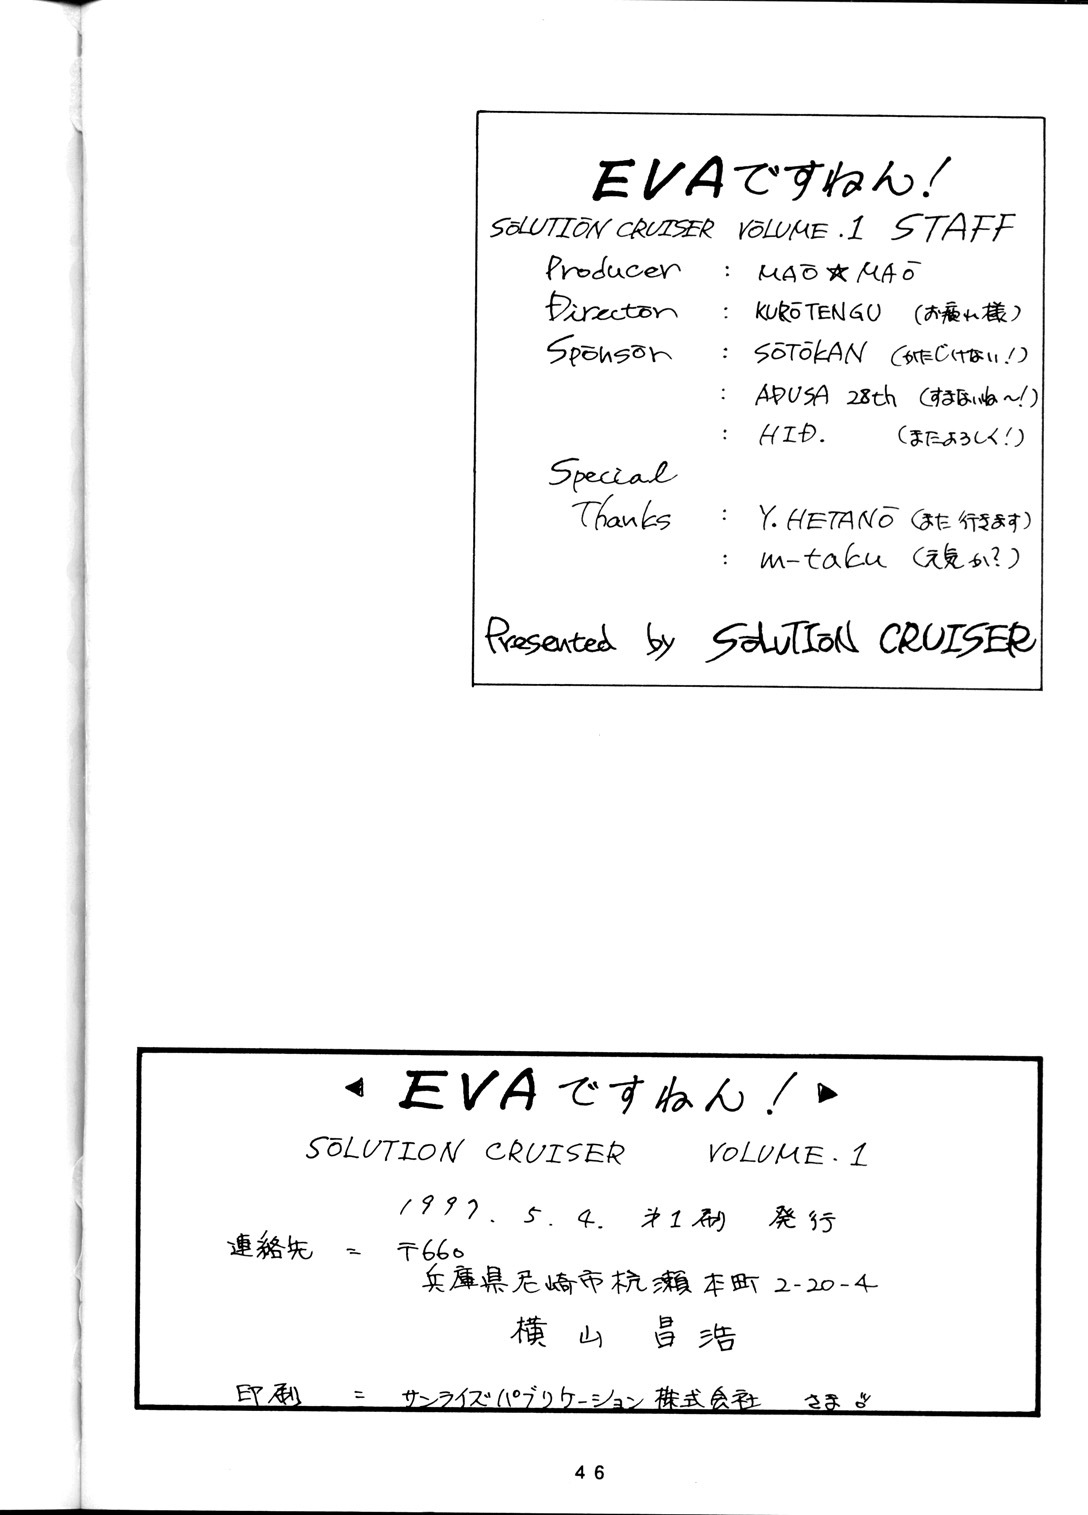 EVAですねん!
SōLUTIōN CRUISER VōLUME.1 STAFF
Producer : MAō★MAō
Director : KURōTENGU (お疲れ様)
Sponsor : SōTōKAN (かたじけない!)
: ADUSA 28th (すまないね〜!)
: HID. (またよろしく!)
Special
Thanks : Y.HETANō (また行きます)
: m-taku (元気か?)
Presented by SōLUTIōN CRUISER
◀ EVAですねん! ▶
SōLUTION CRUISER VOLUME.1
1997.5.4. 才1刷 発行
連絡先 = 〒660
兵庫県尼崎市杭瀬本町2-20-4
横山 昌浩
印刷 = サンライズパブリケーション株式会社 さま
46